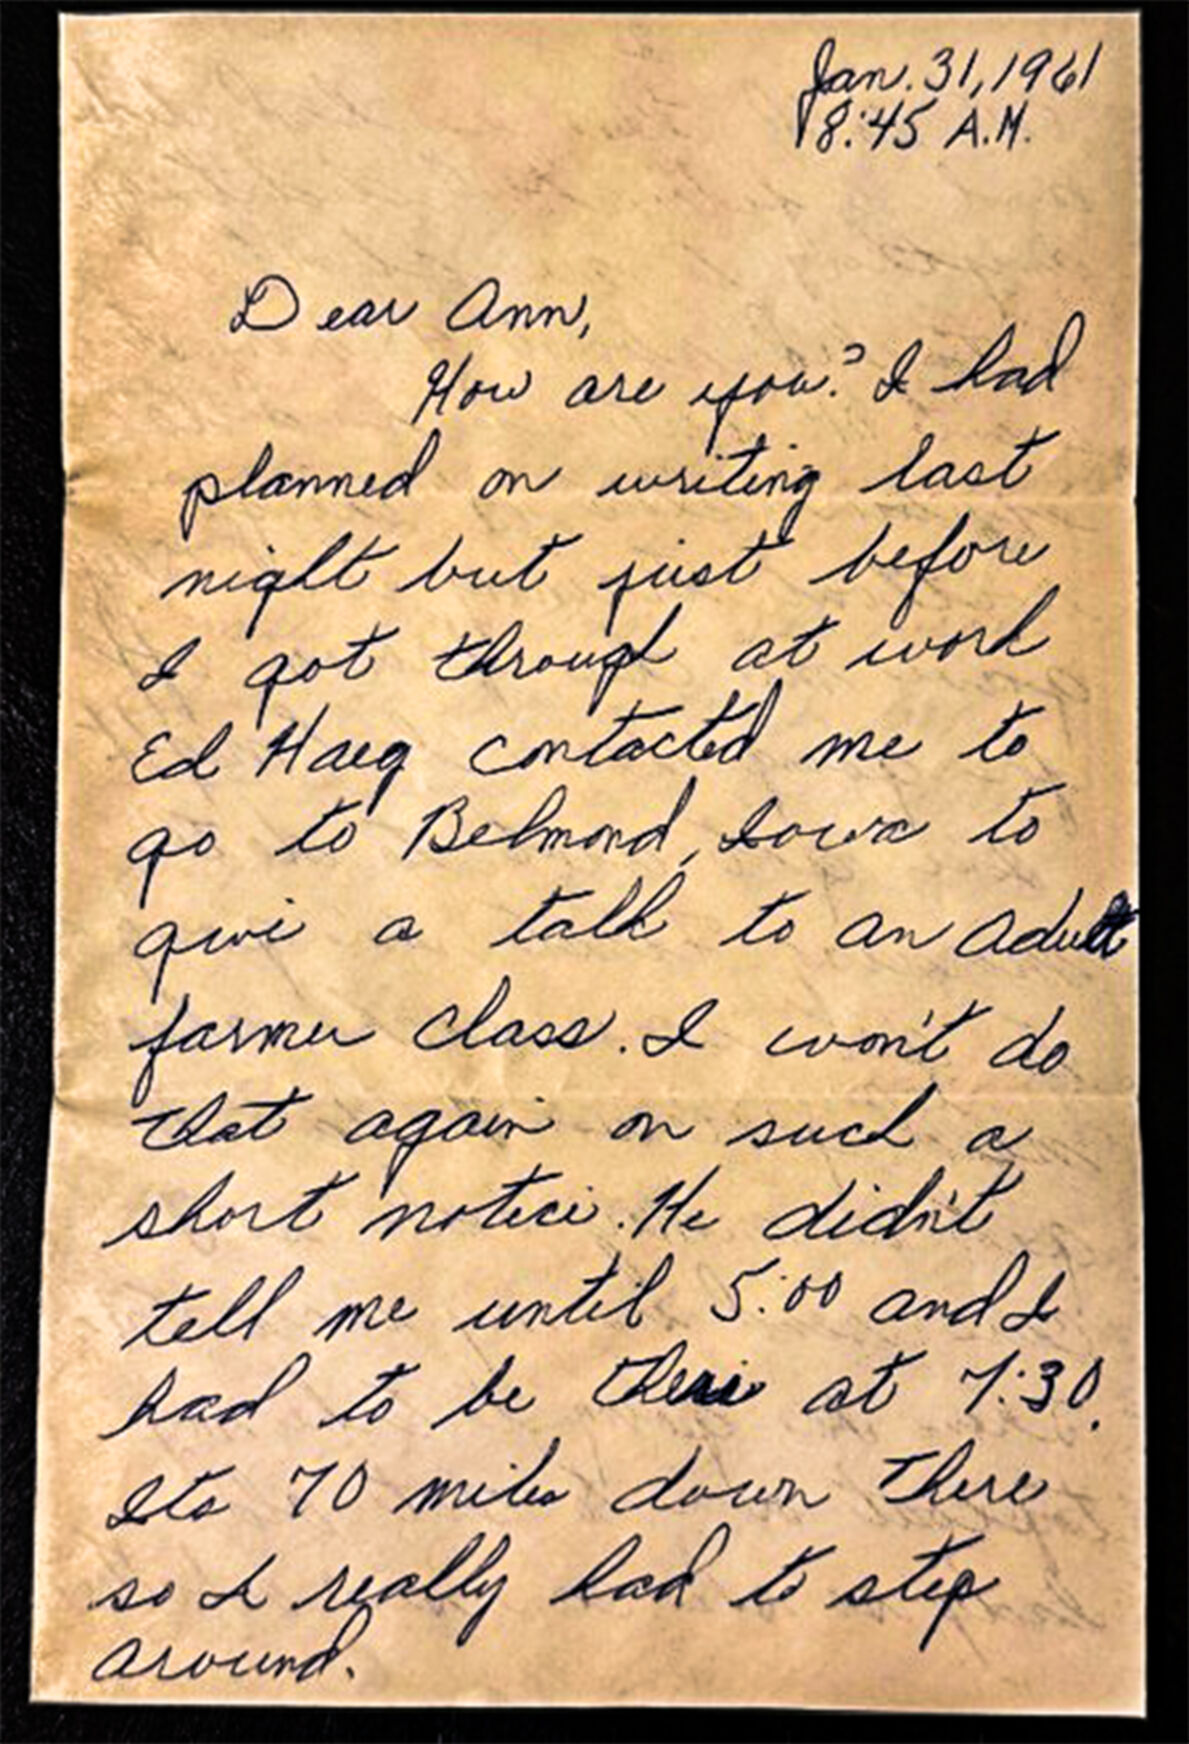 Jan. 31, 1961
8:45 A.M.
Dear Ann,
How are you? I had
planned on writing last
night but just before
I got through at work
Ed Haeg contacted me to
go to Belmond, Iowa to
give a talk to an adult
farmer class. I won't do
that again on such a
short notice. He didn't
tell me until 5:00 and I
had to be there at 7:30.
Its 70 miles down there
so I really had to step
around.